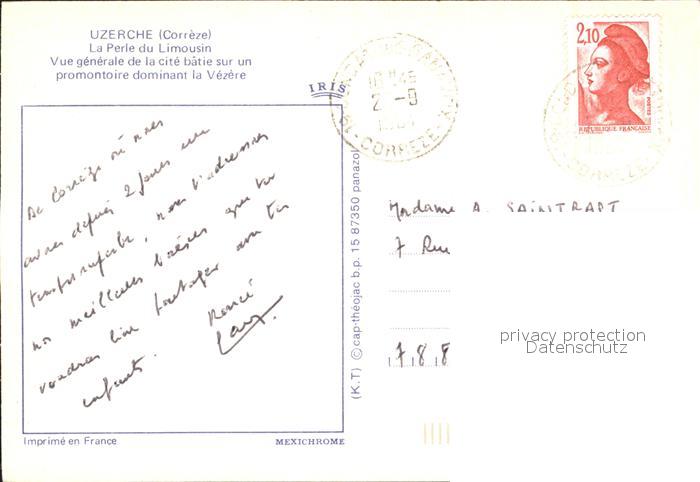 UZERCHE (Corrèze)
La Perle du Limousin
Vue générale de la cité bâtie sur un
promontoire dominant la Vézère
IRIS
De Corrèze où nous
avons depuis 2 jours un
temps superbe, nous t'adressons
nos meilleurs baisers que tu
voudras bien partager avec tes
enfants.
René
Imprimé en France
MEXICHROME
(K.T) © cap-théojac b.p. 15 87350 panazol
2,10
POSTES
REPUBLIQUE FRANÇAISE
18H45
2 -9
19 - CORREZE
CORREZE
Madame A. SAINTRAPT
7 Rue
788
privacy protection
Datenschutz